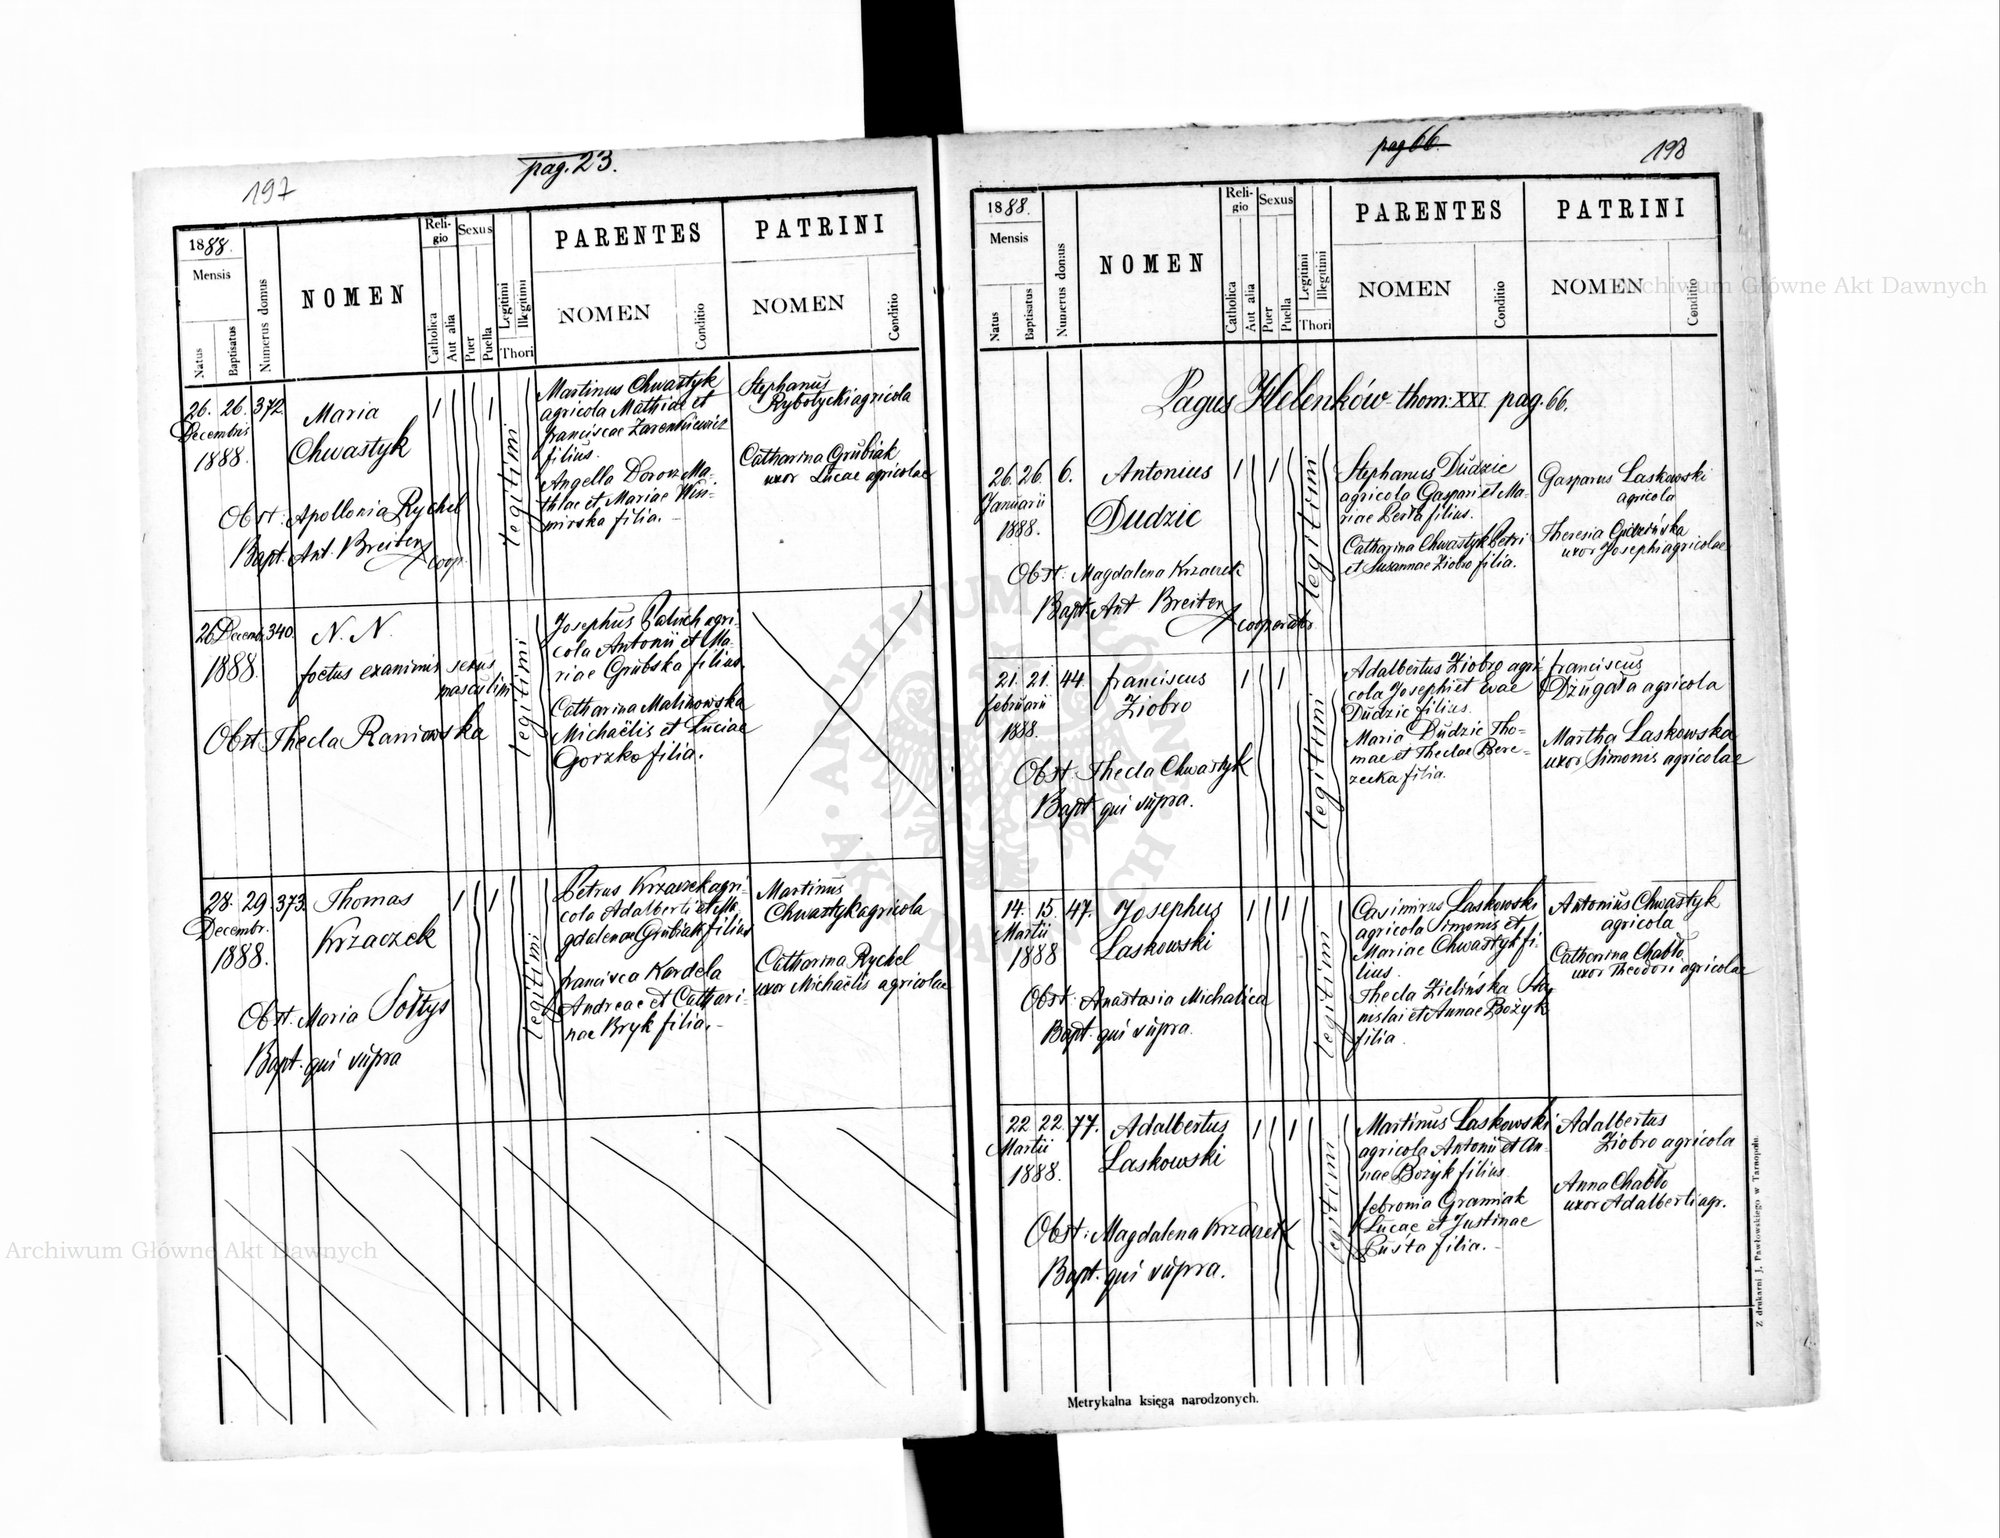 197
pag. 23.
1888.
Mensis
Natus
Baptisatus
Numerus domus
NOMEN
Reli-
gio
Catholica
Aut alia
Sexus
Puer
Puella
Legitimi
Illegitimi
Thori
PARENTES
NOMEN
Conditio
PATRINI
NOMEN
Conditio
26. 26. 372. Maria
Decembris
1888. Chwastyk
1 1 legitimi
Obst: Apollonia Rychel
Bapt. Ant. Breiter
coop.
Martinus Chwastyk
agricola Mathiae et
Franciscae Zarenkiewicz
filius.
Angella Dorosz Ma-
thiae et Mariae Wisz-
mirska filia.
Stephanus
Rybotycki agricola
Catharina Grubiak
uxor Lucae agricolae
26 Decemb. 340. N. N.
1888. foetus exanimis sexus
masculini
legitimi
Obst Thecla Raniowska
Josephus Paluch agri-
cola Antonii et Ma-
riae Grubska filius.
Catharina Malinowska
Michaëlis et Luciae
Gorzko filia.
28. 29. 373. Thomas
Decembr.
1888. Krzaczek
1 1 legitimi
Obst. Maria Sołtys
Bapt. qui supra
Petrus Krzaczek agri-
cola Adalberti et Ma-
gdalenae Grubiak filius
Francisca Kardela
Andreae et Cathari-
nae Bryk filia.
Martinus
Chwastyk agricola
Catharina Rychel
uxor Michaëlis agricolae
pag 66.
198
1888.
Mensis
Natus
Baptisatus
Numerus domus
NOMEN
Reli-
gio
Catholica
Aut alia
Sexus
Puer
Puella
Legitimi
Illegitimi
Thori
PARENTES
NOMEN
Conditio
PATRINI
NOMEN
Conditio
Pagus Helenków thom: XXI pag. 66.
26. 26. 6. Antonius
Januarii
1888. Dudzic
1 1 legitimi
Obst: Magdalena Krzaczek
Bapt Ant Breiter
cooperator
Stephanus Dudzic
agricola Gaspari et Ma-
riae Perta filius.
Catharina Chwastyk Petri
et Susannae Ziobro filia.
Gasparus Laskowski
agricola
Theresia
uxor Josephi agricolae
21. 21. 44. Franciscus
Februarii
1888. Ziobro
1 1 legitimi
Obst. Thecla Chwastyk
Bapt. qui supra.
Adalbertus Ziobro agri-
cola Josephi et Evae
Dudzic filius.
Maria Dudzic Tho-
mae et Theclae Bere-
zecka filia.
Franciscus
Dzugała agricola
Martha Laskowska
uxor Simonis agricolae
14. 15. 47. Josephus
Martii
1888 Laskowski
1 1 legitimi
Obst: Anastasia Michalica
Bapt. qui supra.
Casimirus Laskowski
agricola Simonis et
Mariae Chwastyk fi-
lius.
Thecla Zielińska Sta-
nislai et Annae Bożyk
filia.
Antonius Chwastyk
agricola
Catharina Chabło
uxor Theodori agricolae
22. 22. 77. Adalbertus
Martii
1888. Laskowski
1 1 legitimi
Obst: Magdalena Krzaczek
Bapt. qui supra.
Martinus Laskowski
agricola Antonii et An-
nae Bożyk filius.
Febronia Graniak
Lucae et Justinae
Pusta filia.
Adalbertus
Ziobro agricola
Anna Chabło
uxor Adalberti agr.
Metrykalna księga narodzonych.
Z drukarni J. Pawłowskiego w Tarnopolu.
Archiwum Główne Akt Dawnych
Archiwum Główne Akt Dawnych
ARCHIWUM GŁÓWNE AKT DAWNYCH